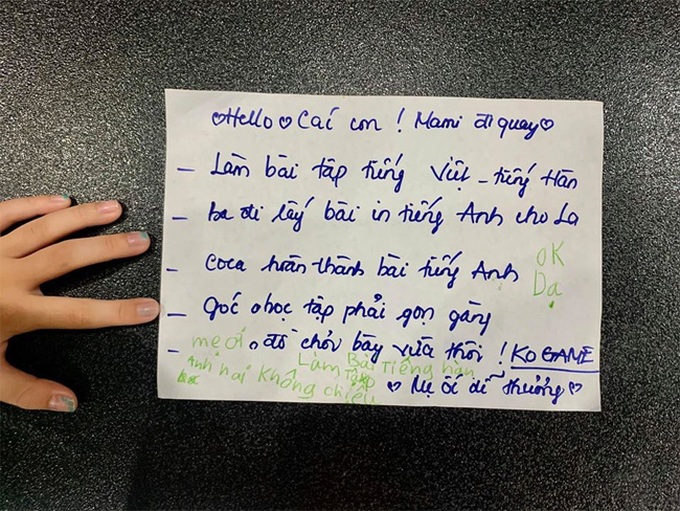 ♡Hello♡ Các con ! Mami đi quay♡
– Làm bài tập tiếng Việt – tiếng Hàn
– Ba đi lấy bài in tiếng Anh cho La
– Coca hoàn thành bài tiếng Anh
OK
Dạ
– Góc học tập phải gọn gàng
– đồ chơi bày vừa thôi ! KO GAME
mẹ ơi
Anh hai không chiệu
Làm Bài tập tiếng hàn
♡ Mẹ ối dễ thương ♡